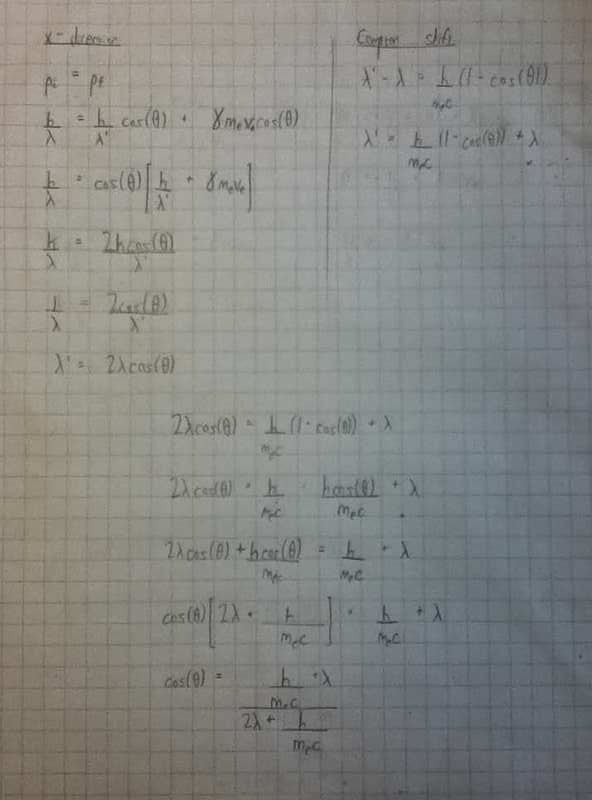 x-direction
pi = pf
h/λ = h/λ' cos(θ) + γmeve cos(θ)
h/λ = cos(θ)[h/λ' + γmeve]
h/λ = 2hcos(θ)/λ'
1/λ = 2cos(θ)/λ'
λ' = 2λcos(θ)
Compton shift
λ' - λ = h/mec (1 - cos(θ))
λ' = h/mec (1 - cos(θ)) + λ
2λcos(θ) = h/mec (1 - cos(θ)) + λ
2λcos(θ) = h/mec - hcos(θ)/mec + λ
2λcos(θ) + hcos(θ)/mec = h/mec + λ
cos(θ)[2λ + h/mec] = h/mec + λ
cos(θ) = (h/mec + λ)/(2λ + h/mec)